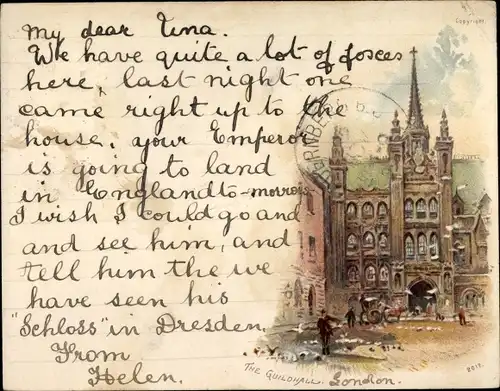 My dear Tina.
We have quite a lot of foxes
here, last night one
came right up to the
house, your Emperor
is going to land
in England to-morrow
I wish I could go and
and see him, and
tell him the we
have seen his
"Schloss" in Dresden.
From
Helen.
Copyright.
THE GUILDHALL. London.